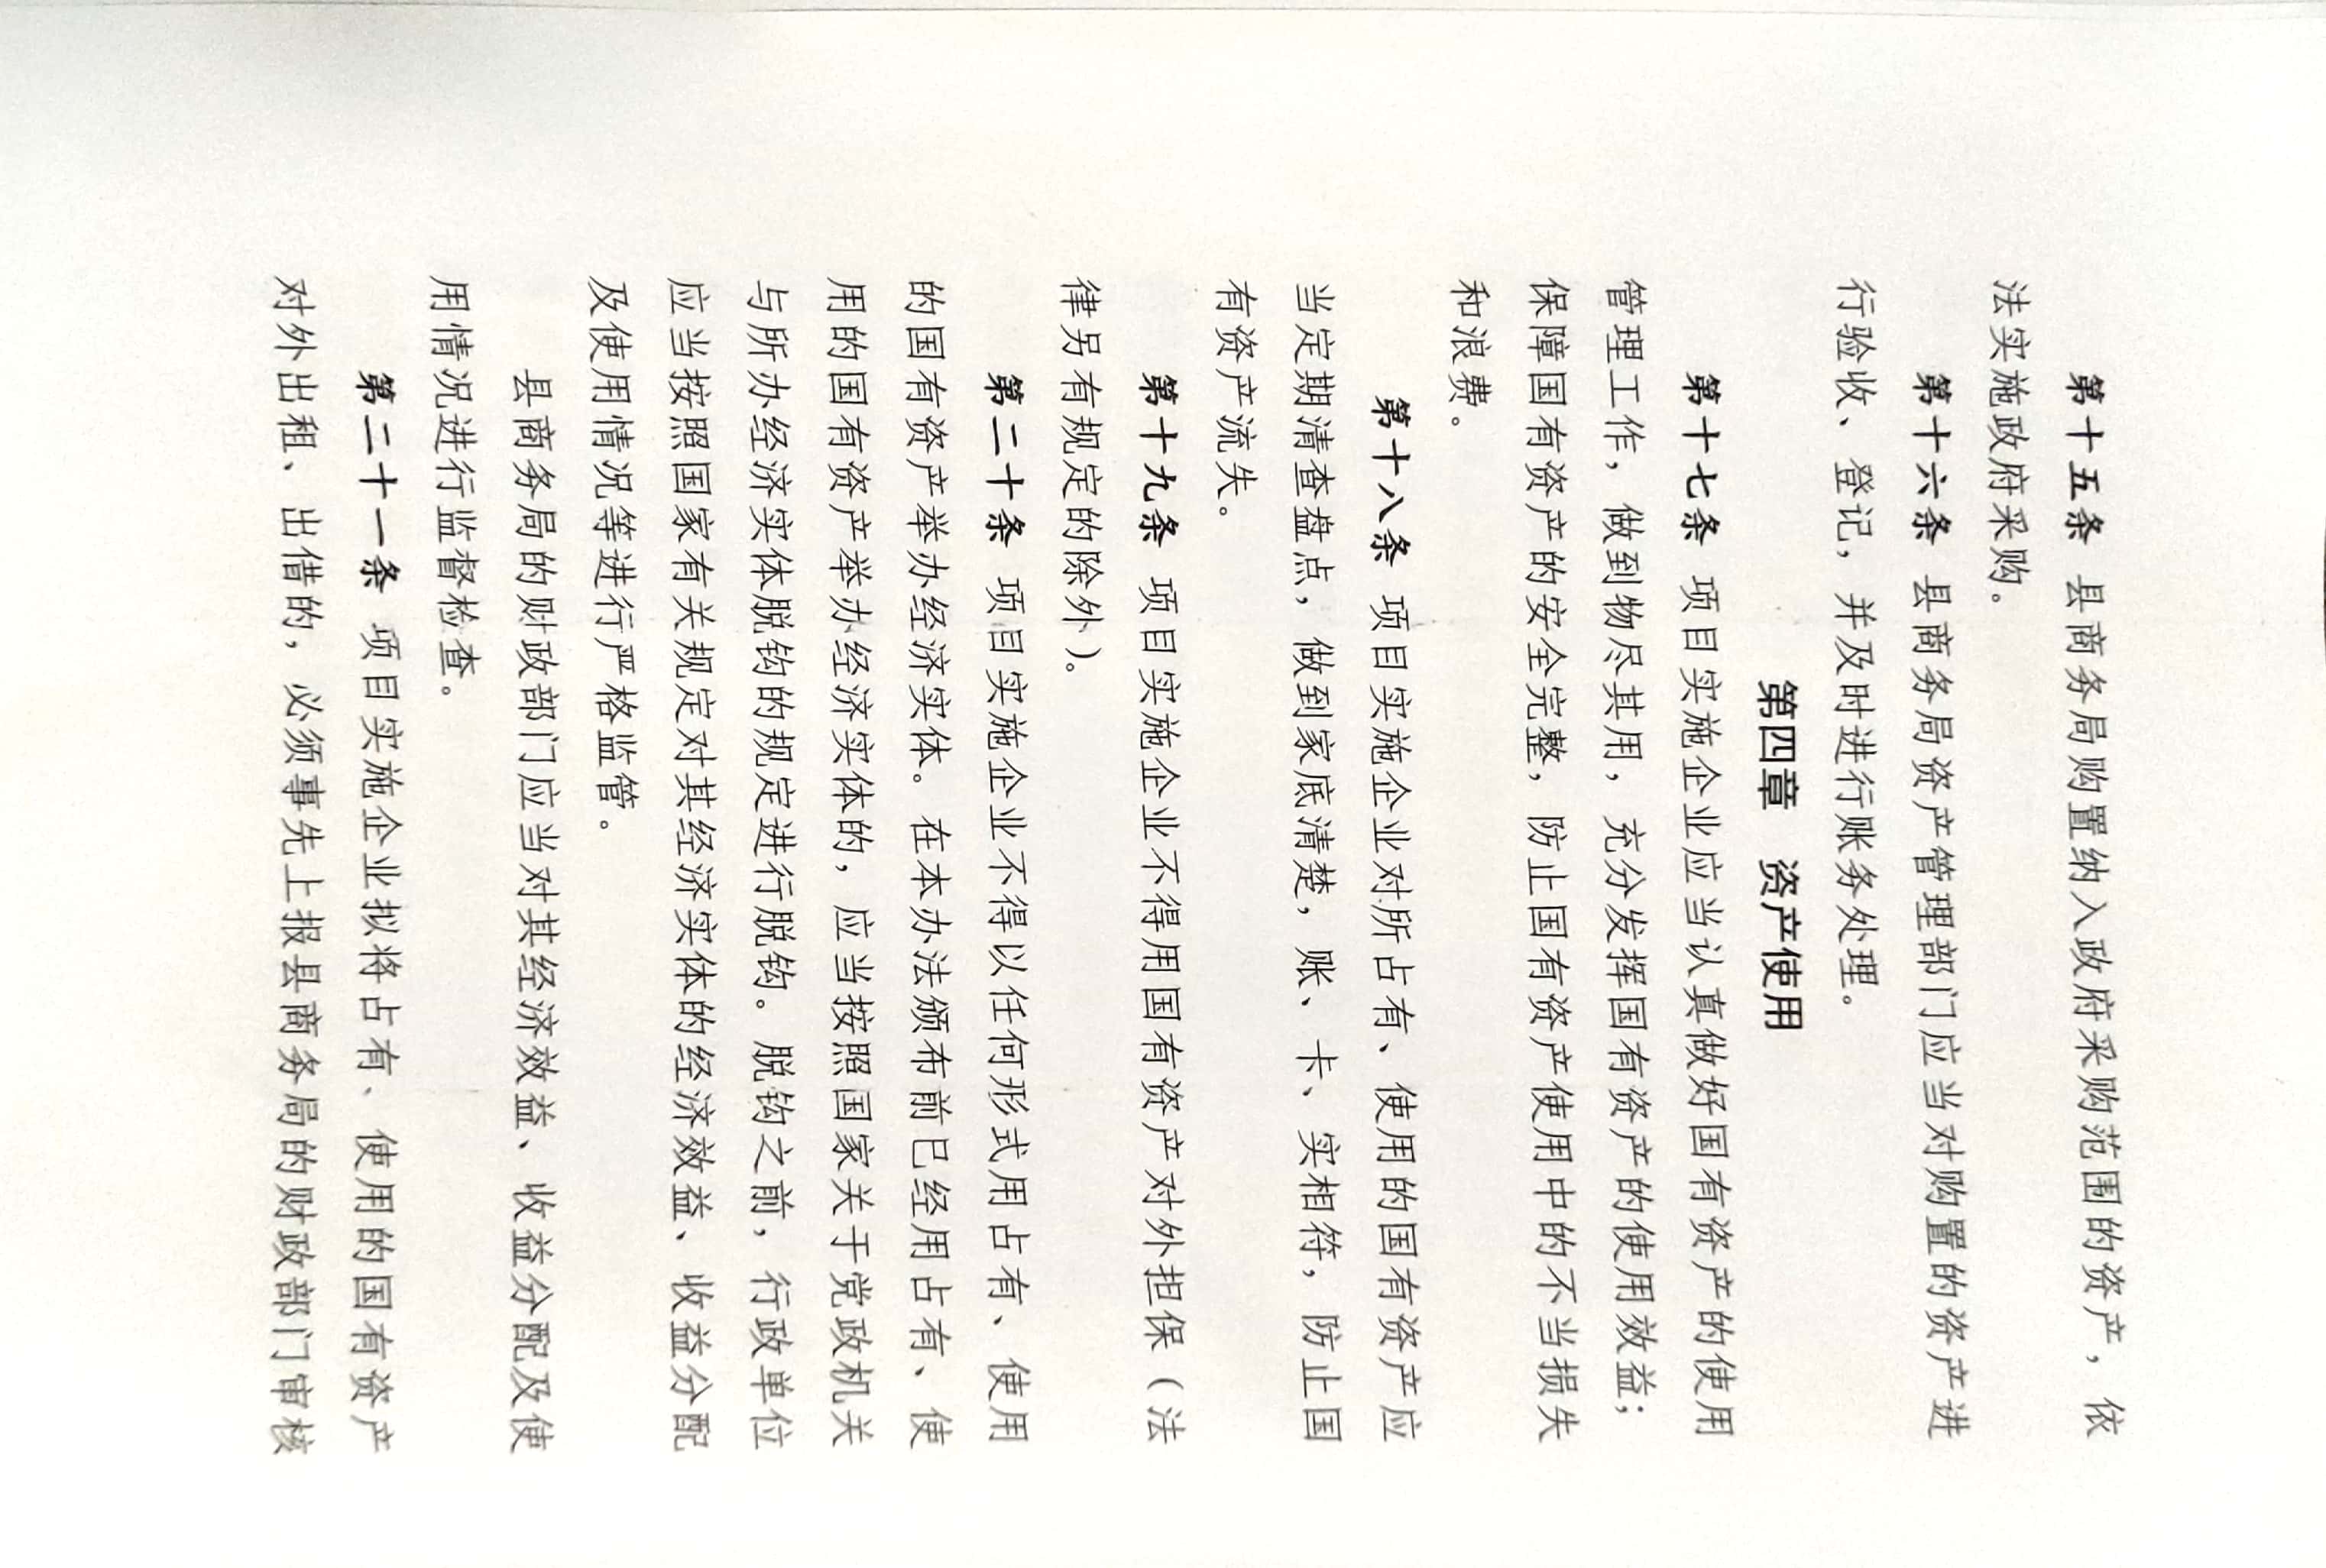 第十五条 县商务局购置纳入政府采购范围的资产，依
法实施政府采购。
第十六条 县商务局资产管理部门应当对购置的资产进
行验收、登记，并及时进行账务处理。
第四章 资产使用
第十七条 项目实施企业应当认真做好国有资产的使用
管理工作，做到物尽其用，充分发挥国有资产的使用效益；
保障国有资产的安全完整，防止国有资产使用中的不当损失
和浪费。
第十八条 项目实施企业对所占有、使用的国有资产应
当定期清查盘点，做到家底清楚，账、卡、实相符，防止国
有资产流失。
第十九条 项目实施企业不得用国有资产对外担保（法
律另有规定的除外）。
第二十条 项目实施企业不得以任何形式用占有、使用
的国有资产举办经济实体。在本办法颁布前已经用占有、使
用的国有资产举办经济实体的，应当按照国家关于党政机关
与所办经济实体脱钩的规定进行脱钩。脱钩之前，行政单位
应当按照国家有关规定对其经济实体的经济效益、收益分配
及使用情况等进行严格监管。
县商务局的财政部门应当对其经济效益、收益分配及使
用情况进行监督检查。
第二十一条 项目实施企业拟将占有、使用的国有资产
对外出租、出借的，必须事先上报县商务局的财政部门审核